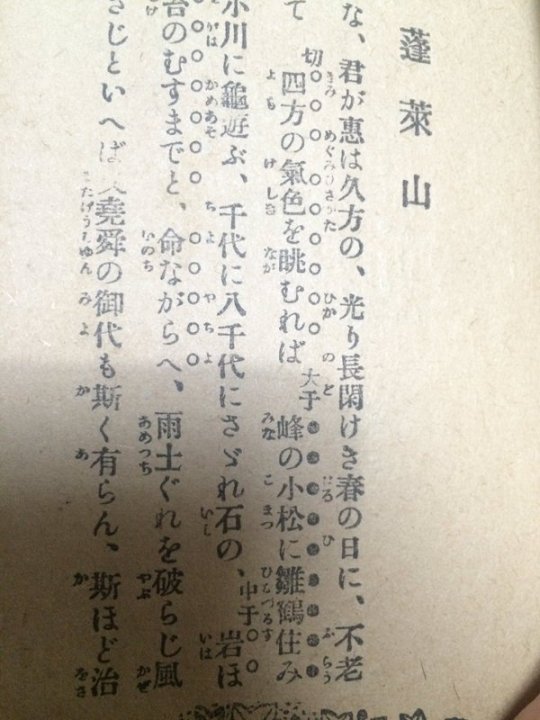 蓬萊山
な、君が惠は久方の、光り長閑けき春の日に、不老
て 切 四方の氣色を眺むれば 大干 峰の小松に雛鶴住み
小川に龜遊ぶ、千代に八千代にさゞれ石の、中干 岩ほ
苔のむすまでと、命ながらへ、雨土ぐれを破らじ風
さじといへば 堯舜の御代も斯く有らん、斯ほど治